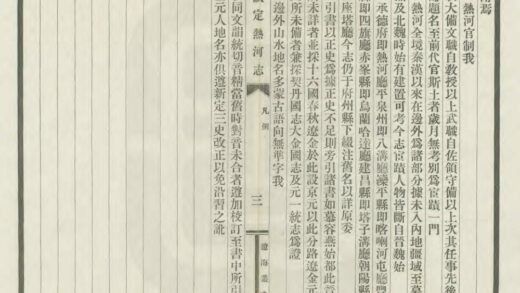 焉
熱河官制我
大備文職自教授以上武職自佐領守備以上次其任事先後
題名至前代官斯土者歲月無考別爲宦蹟一門
熱河全境秦漢以來在邊外爲諸部分據未入內地疆域至慕
及北魏時始有建置可考今志宦蹟人物皆斷自晉魏始
承德府即熱河廳平泉州即八溝廳灤平縣即喀喇河屯廳豐
即四旗廳赤峯縣即烏蘭哈達廳建昌縣即塔子溝廳朝陽縣
座塔廳今志仍于府州縣下級注舊名以詳原委
引書以正史爲據正史不足則旁引諸書如慕容燕始都此晉
未詳者並採十六國春秋遼金於此設京元以此分路遼金元
所未備者兼採契丹國志大金國志及元一統志爲證
邊外山水地名多蒙古語向無華字我
定熱河志
凡例
三
遼海叢
同文韻統切音精當舊時對音未合者遵加校訂至書中所引
元人地名亦俱遵新定三史改正以免沿習之訛